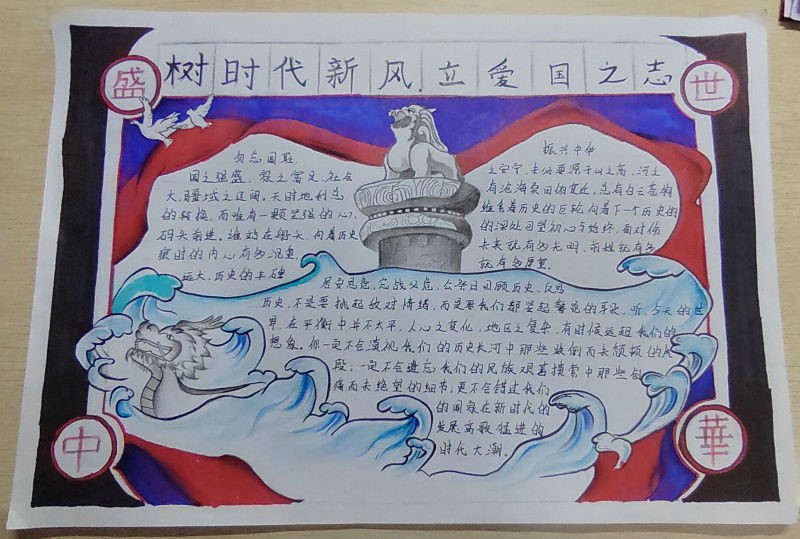 树时代新风立爱国之志
盛
世
中
華
勿忘国耻
国之强盛,家之富足,社会
大,疆域之辽阔,天时地利总
的转换,而唯有一颗坚强的心,
码头前进,谁站在船头,向着历史
狼时的内心有多沉重
远大,历史的丰碑
振兴中华
之安宁
有沧海桑田的变迁,总有白云苍狗
维系着历史的巨轮向着下一个历史的
的深处回望初心与始终,面对伤
去来就有多光明,前程就有多
就有多厚重。
居安思危,忘战必危,公祭日回顾历史,反思
历史,不是要挑起敌对情绪,而是要我们都竖起警觉的耳朵,听,今天的世
界,在平衡中并不太平,人心之变化,地区之复杂,有时候远超我们的
想象。你一定不会漠视我们的历史长河中那些装倒而去愤顿的片
段;一定不会遗忘我们的民族艰苦摸索中那些创
痛而去绝望的细节;更不会错过我们
的国家在新时代的
发展高歌猛进的
时代大潮。